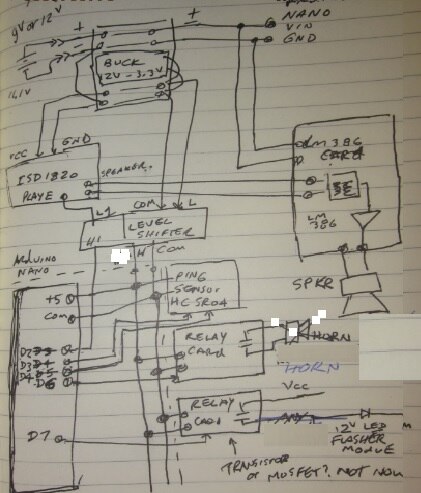 9V or 12V
+
+
NANO
VIN
GND
-
BUCK
12V - 3.3V
VCC
GND
LM 386
ISD 1820
SPEAKER
PLAYE
L1
COM
L
LEVEL
SHIFTER
LM
386
H1
H
COM
ARDUINO
NANO
PING
SENSOR
HC-SR04
SPKR
+5
COM
RELAY
CARD
HORN
HORN
D2
D3
D4
D6
VCC
RELAY
CARD
D7
12V LED
FLASHER
MODULE
TRANSISTOR
or MOSFET? NOT NOW